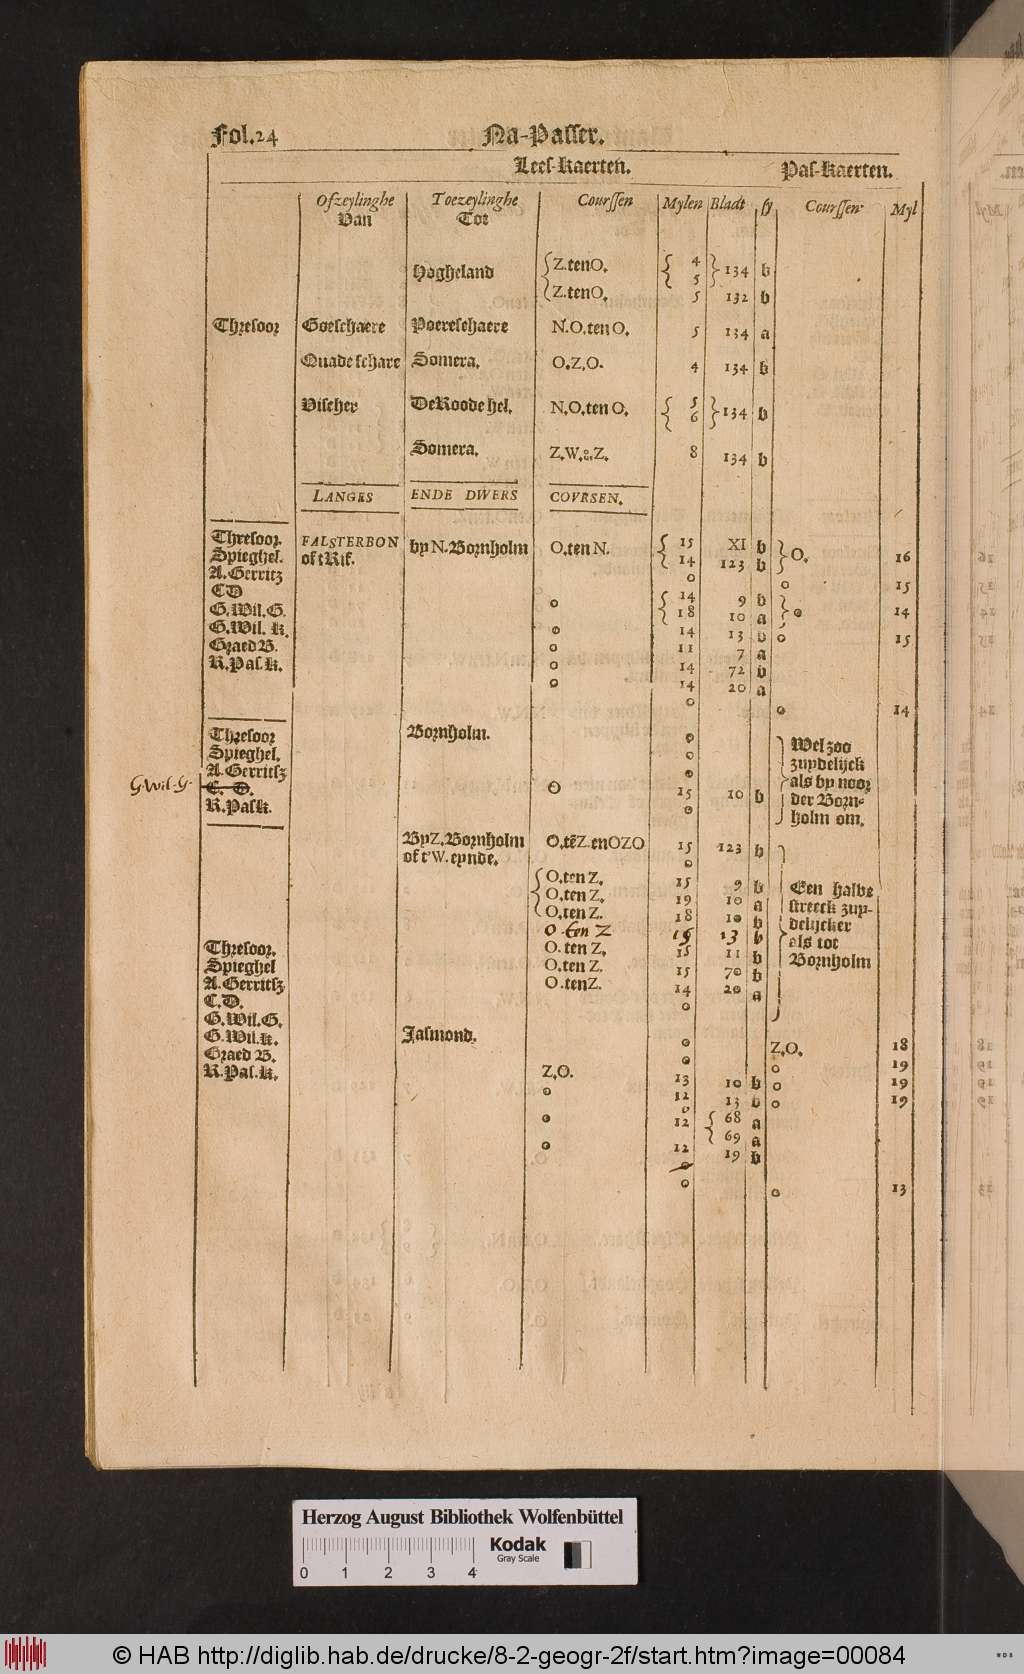 Fol.24 Na-Passer.
Lees-Kaerten. Pas-Kaerten.
Ofzeylinghe Toezeylinghe Courssen Mylen Bladt sy Courssen Myl
Van Tot
Hogheland Z.tenO. 4 134 b
5
Z.tenO. 5 132 b
Thresoor Goeschaere Poereschaere N.O.tenO. 5 134 a
Quade schare Somera. O.Z.O. 4 134 b
Visscher DeRoode hel. N.O.tenO. 5 134 b
6
Somera. Z.W. Z. 8 134 b
LANGES ENDE DWERS COVRSEN.
Thresoor. FALSTERBON by N. Bornholm O.ten N. 15 XI b O. 16
Spieghel. of tRif. 14 123 b
A.Gerritz o o 15
CD o 14 9 b o 14
G.Wil.G. 18 10 a
G.Wil. K. o 14 13 b o 15
Graed B. o 11 7 a
R.Pas.K. o 14 72 b
o 14 20 a
o o 14
Thresoor Bornholm. o Wel zoo
Spieghel. o zuydelijck
A.Gerritsz o als by noor
G.Wil.G. C. D. o 15 10 b der Born-
R.Pask. o holm om.
ByZ.Bornholm O.tēZ.enOZO 15 123 b
of t'W.eynde. o
O.ten Z. 15 9 b Een halve
O.ten Z. 19 10 a streeck zuy-
O.ten Z. 18 10 b delijcker
O ten Z 13 b als tot
Thresoor. O.ten Z. 15 11 b Bornholm
Spieghel O.ten Z. 15 70 b
A.Gerritsz O.tenZ. 14 20 a
C.D. o
G.Wil.G.
G.Wil.K. Jasmond. o Z.O. 18
Graed B. o o 19
R.Pas.K. Z.O. 13 10 b o 19
o 12 13 b o 19
o
o 12 68 a
69 a
o 12 19 b
o
o o 13
Herzog August Bibliothek Wolfenbüttel
Kodak
Gray Scale
0 1 2 3 4
© HAB http://diglib.hab.de/drucke/8-2-geogr-2f/start.htm?image=00084